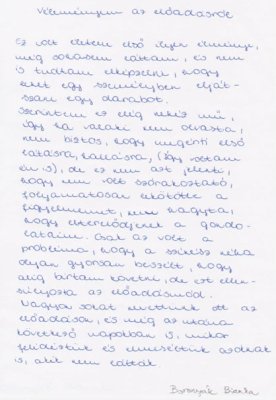 Véleményem az előadásról
Ez volt életem első ilyen élménye,
még sohasem láttam, és nem
is tudtam elképzelni, hogy
lehet egy személyben eljátszani egy darabot.
Szerintem ez elég nehéz mű,
így ha valaki nem olvasta,
nem biztos, hogy megérti első
látásra, hallásra, (így voltam
én is), de ez nem azt jelenti,
hogy nem volt szórakoztató,
folyamatosan lekötötte a
figyelmemet, nem hagyta,
hogy elterelődjenek a gondolataim. Csak az volt a
probléma, hogy a színész néha
olyan gyorsan beszélt, hogy
alig bírtam követni, de ezt ellensúlyozta az előadásmód.
Nagyon sokat nevettünk ott az
előadáson, és még az utána
következő napokban is, mikor
felidéztük és elmeséltük azoknak
is, akik nem látták.
Baranyák Bianka